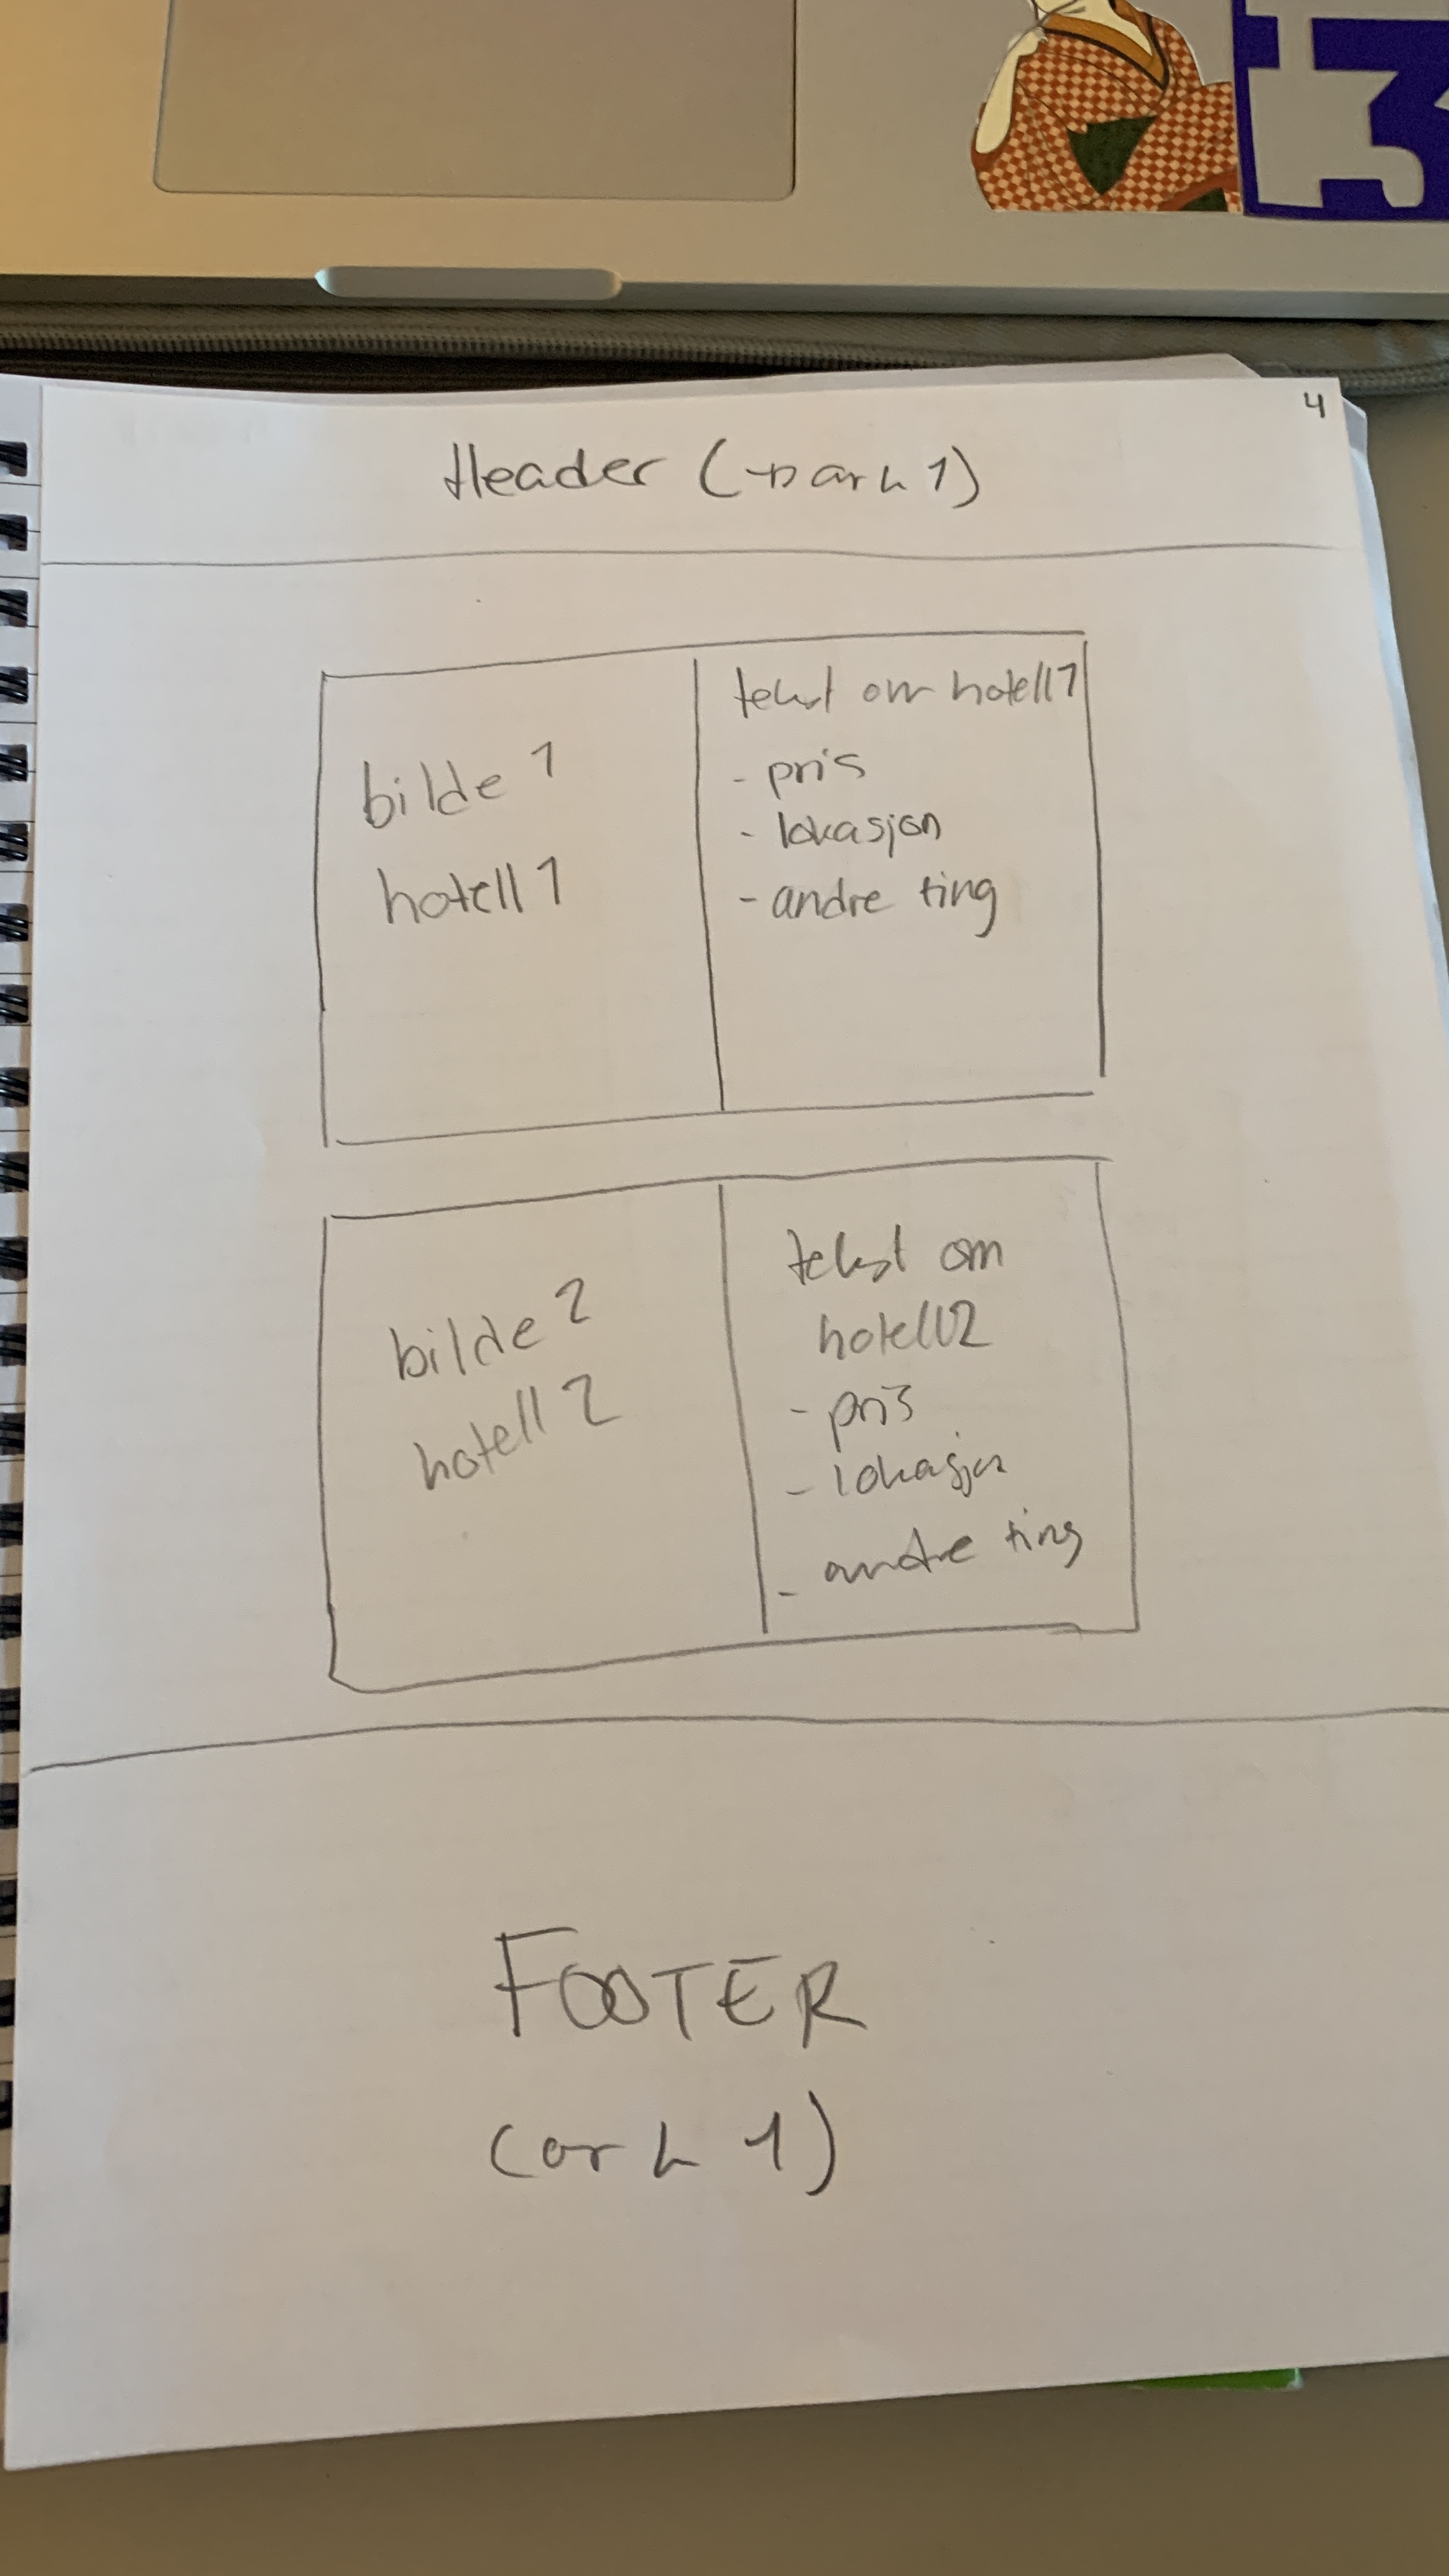 4
Header (→ ark 1)
bilde 1
hotell 1
tekst om hotell 1
- pris
- lokasjon
- andre ting
bilde 2
hotell 2
tekst om
hotell 2
- pris
- lokasjon
- andre ting
FOOTER
(ark 1)